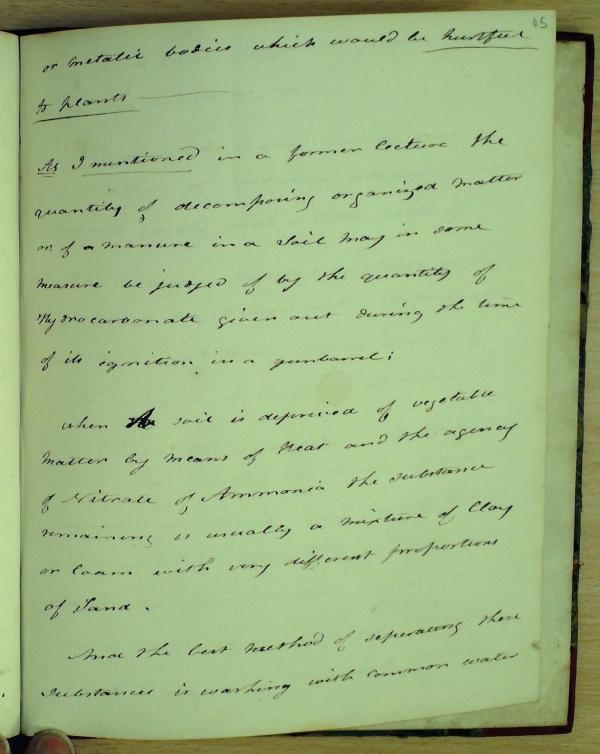 45
or metalic bodies which would be hurtful
to plants
As I mentioned in a former lecture the
quantity of decomposing organized matter
or of a manure in a soil may in some
measure be judged of by the quantity of
Hydrocarbonate given out during the time
of its ignition in a gunbarrel;
when soil is deprived of vegetable
matter by means of Heat and the agency
of Nitrate of Ammonia the substance
remaining is usually a mixture of Clay
or loam with very different proportions
of Sand.
And the best method of seperating these
substances is washing with common water